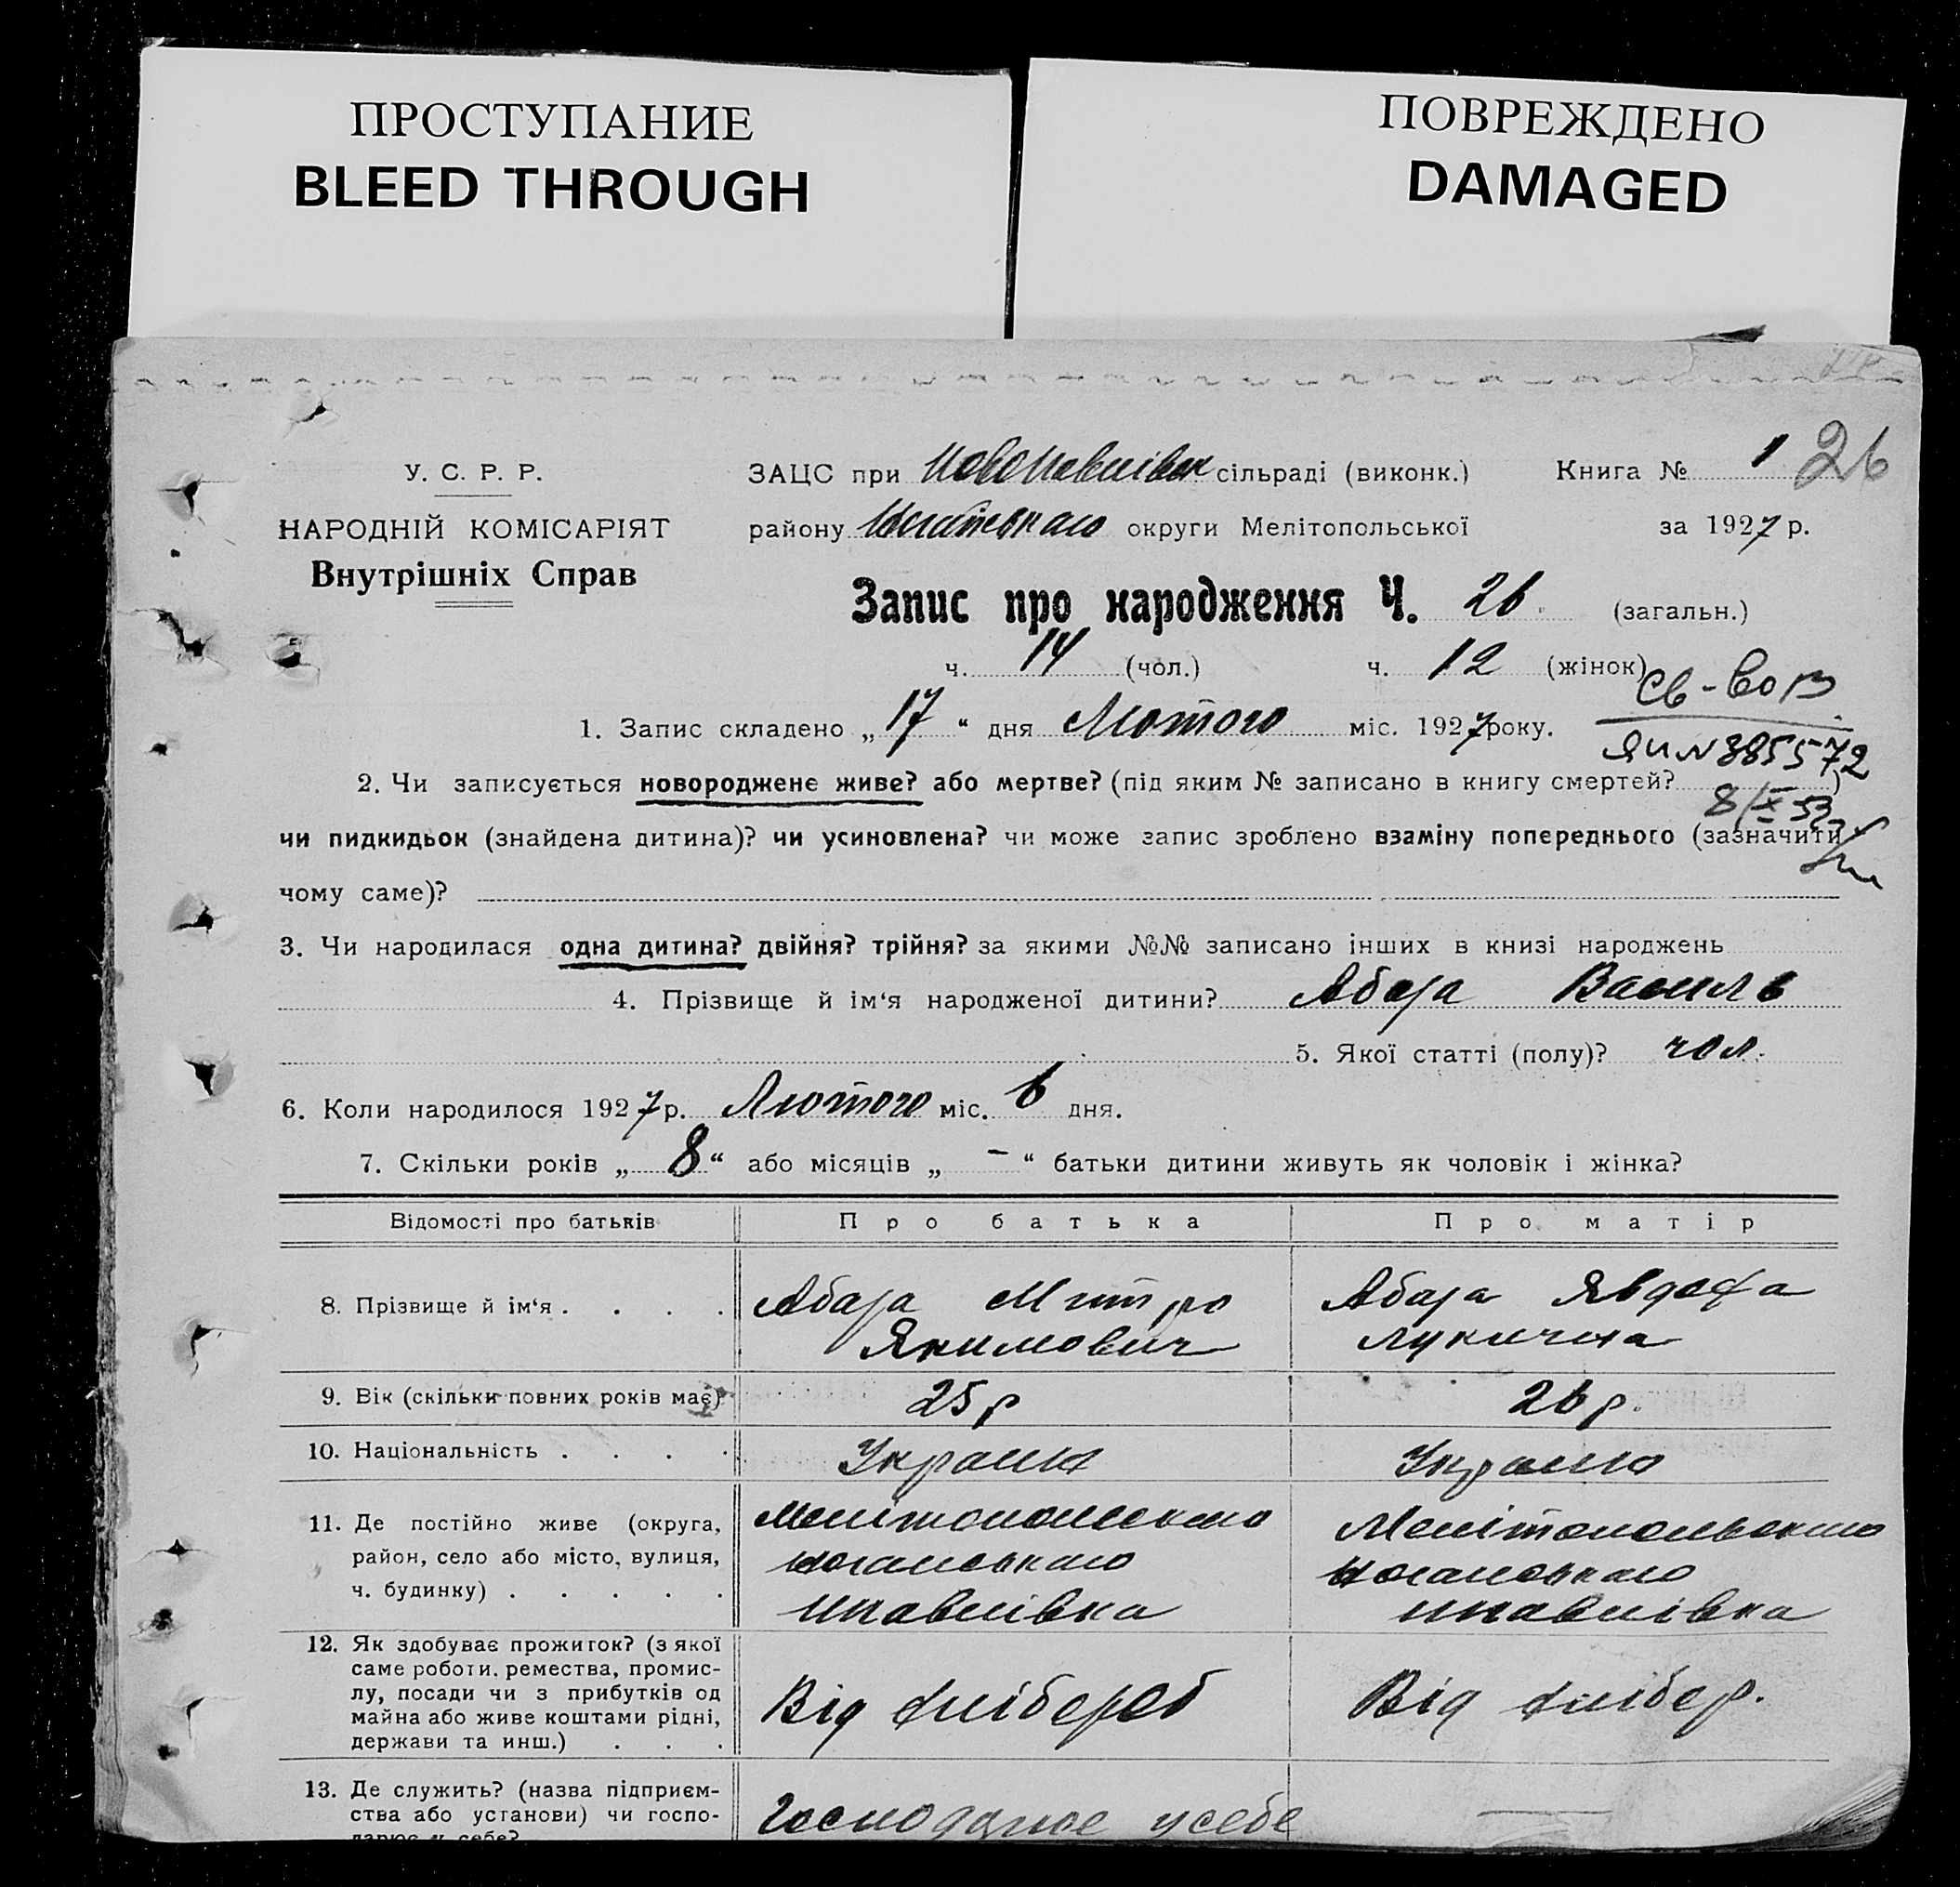 ПРОСТУПАНИЕ
BLEED THROUGH
ПОВРЕЖДЕНО
DAMAGED
У. С. Р. Р.
НАРОДНІЙ КОМІСАРІЯТ
Внутрішніх Справ
ЗАЦС при Новопавлівск сільраді (виконк.)
Книга № 1 26
району округи Мелітопольської
за 1927 р.
Запис про народження Ч. 26 (загальн.)
ч. 14 (чол.) ч. 12 (жінок)
Св-во
1. Запис складено „17“ дня Лютого міс. 1927 року.
ЯИ N 885572
2. Чи записується новороджене живе? або мертве? (під яким № записано в книгу смертей? )
8/X 53
чи пидкидьок (знайдена дитина)? чи усиновлена? чи може запис зроблено взаміну попереднього (зазначити
чому саме)?
3. Чи народилася одна дитина? двійня? трійня? за якими №№ записано інших в книзі народжень
4. Прізвище й ім‘я народженої дитини? Абаја Василь
5. Якої статті (полу)? чол.
6. Коли народилося 1927 р. Лютого міс. 6 дня.
7. Скільки років „8“ або місяців „–“ батьки дитини живуть як чоловік і жінка?
Відомості про батьків Про батька Про матір
8. Прізвище й ім‘я . . . . Абаја Митро Абаја Явдоха
Якимович Лукична
9. Вік (скільки повних років має) 25 р 26 р.
10. Національність . . . . Україн Україн
11. Де постійно живе (округа, Мелітопольського Мелітопольського
район, село або місто, вулиця, Ногайського Ногайського
ч. будинку) . . . . . Нпавлівка Нпавлівка
12. Як здобуває прожиток? (з якої
саме роботи. ремества, промис-
лу, посади чи з прибутків од
майна або живе коштами рідні, Від хлібероб Від хлібер.
держави та инш.) . . .
13. Де служить? (назва підприєм-
ства або установи) чи госпо- Господарює у себе —
дарює у себе?